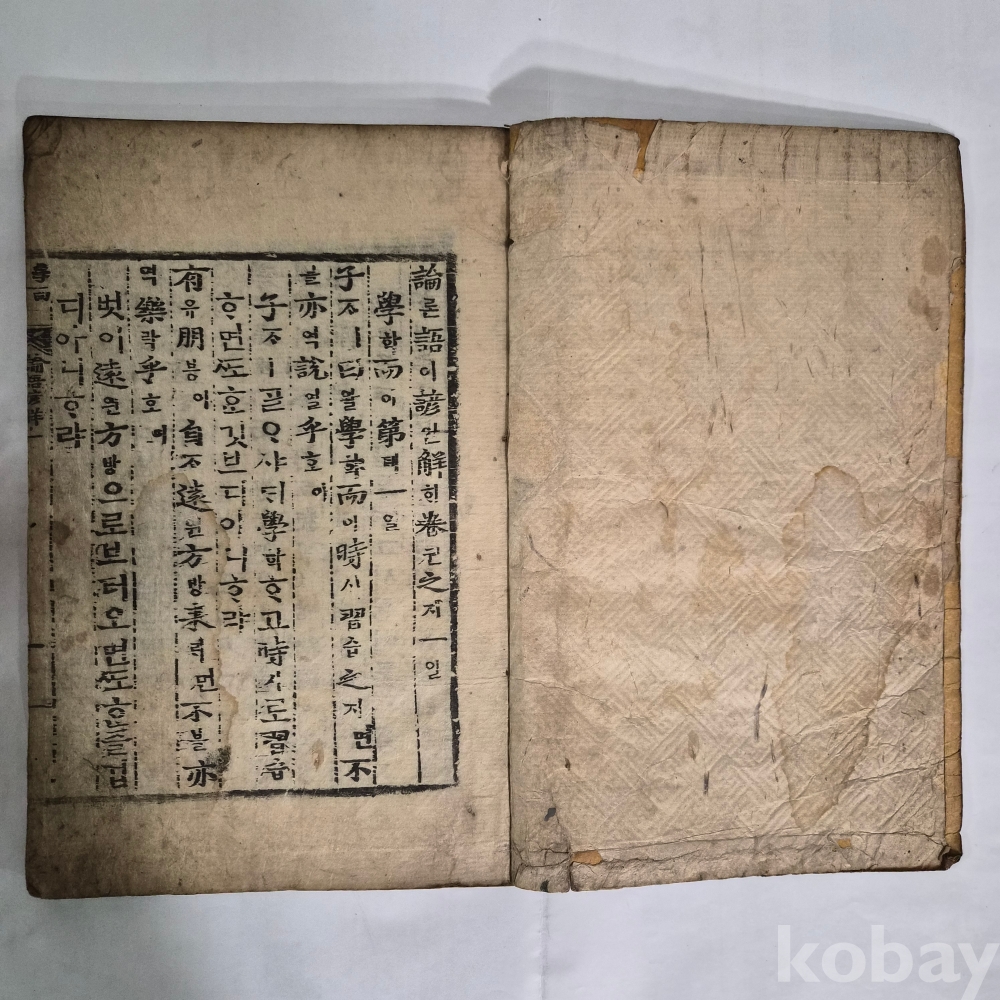 論론語어諺언解ᄒᆡ卷권之지一일
學학而이第뎨一일
子ᄌᆞㅣ曰왈學학而이時시習습之지면不
블亦역說열乎호아
子ᄌᆞㅣᄀᆞᆯᄋᆞ샤ᄃᆡ學학ᄒᆞ고時시로習습
ᄒᆞ면ᄯᅩᄒᆞᆫ깃브디아니ᄒᆞ랴
有유朋븡이自ᄌᆞ遠원方방來ᄅᆡ면不블亦
역樂락乎호아
벗이遠원方방으로브터오면ᄯᅩᄒᆞᆫ즐겁
디아니ᄒᆞ랴
論語諺解一
學而
kobay